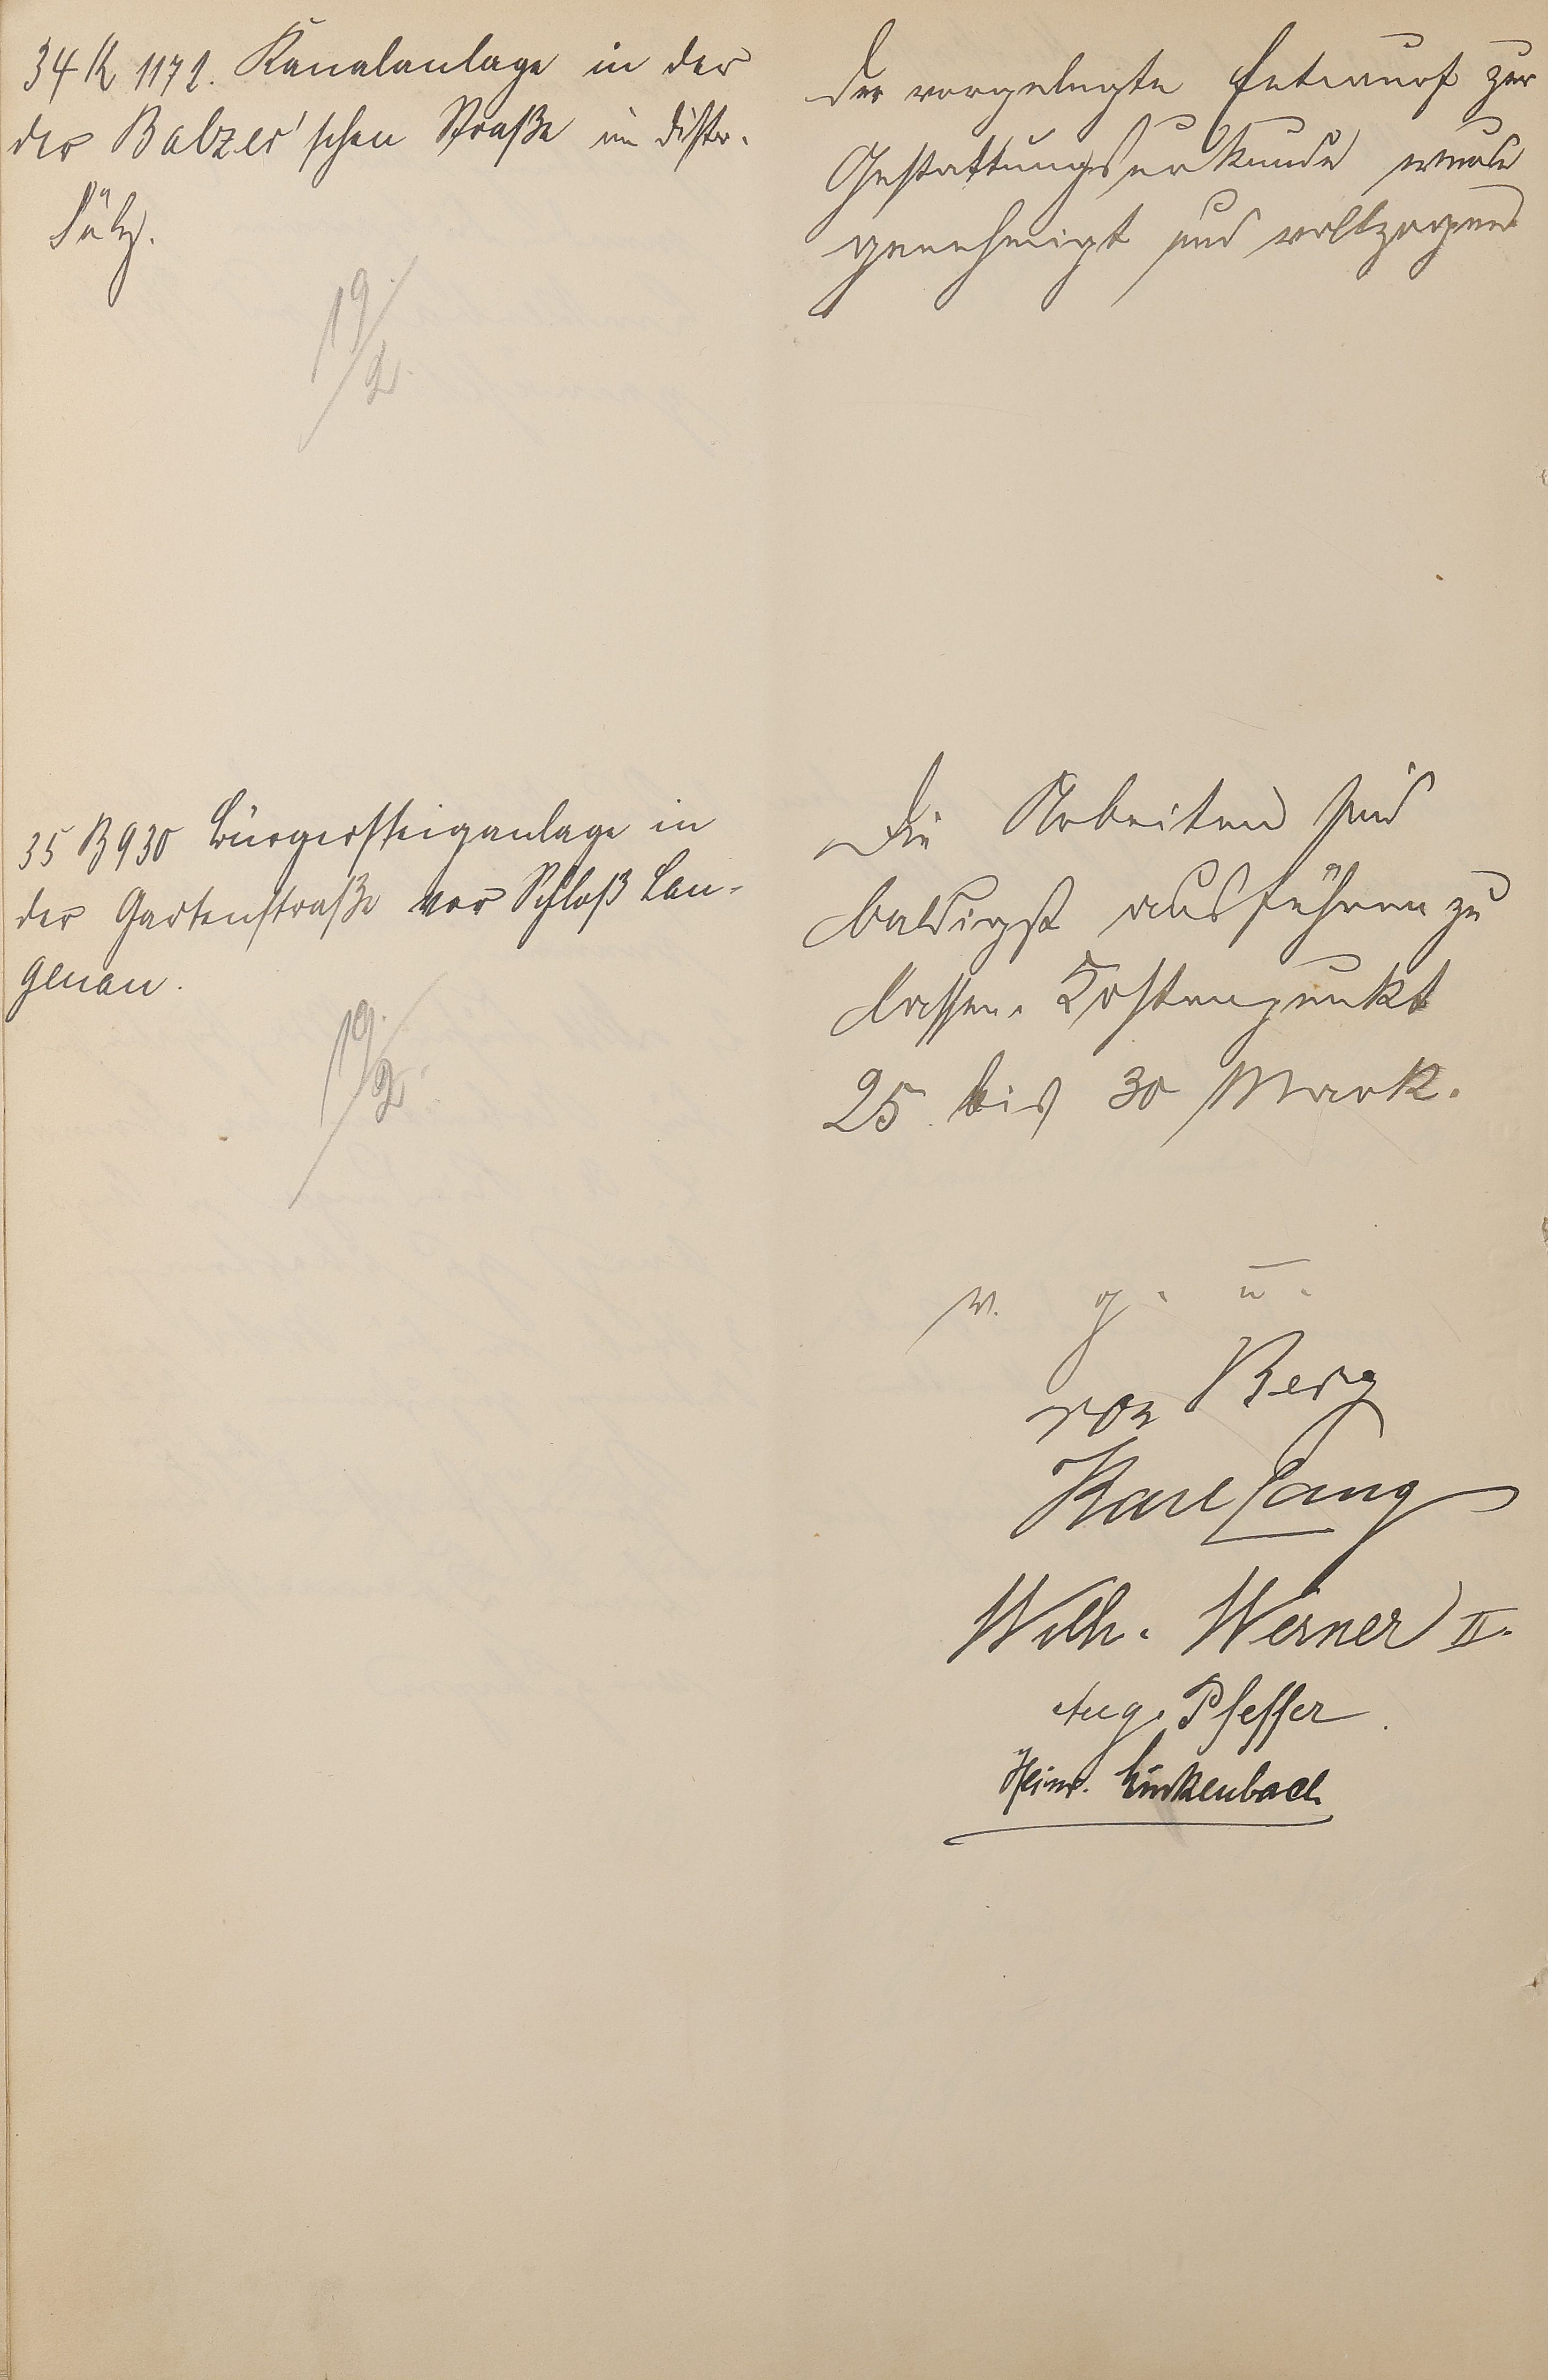 34 K 1171. Kanalanlage in der
der Balzer'schen Straße im Distr.
Sülz.
19./2.
Der vorgelegte Entwurf zur
Gestattungsurkunde wurde
genehmigt und vollzogen
35 B 930 Bürgersteiganlage in
der Gartenstraße vor Schloß Lan-
genau.
19./2.
Die Arbeiten sind
baldigst ausführen zu
lassen. Kostenpunkt
25 bis 30 Mark.
v. g. u.
von Berg
Karl Lang
Wilh. Werner II.
Aug. Pfeffer
Heinr. Linkenbach